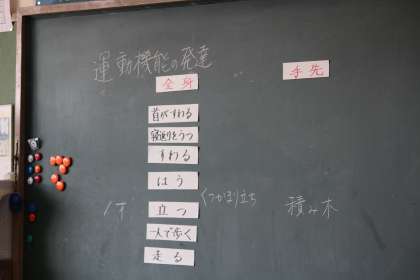 運動機能の発達
全身
手先
首がすわる
寝返りをうつ
すわる
はう
立つ
つかまり立ち
積み木
一人で歩く
走る